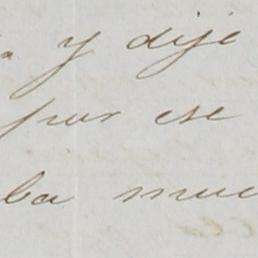 y dije
por ese
ba muc